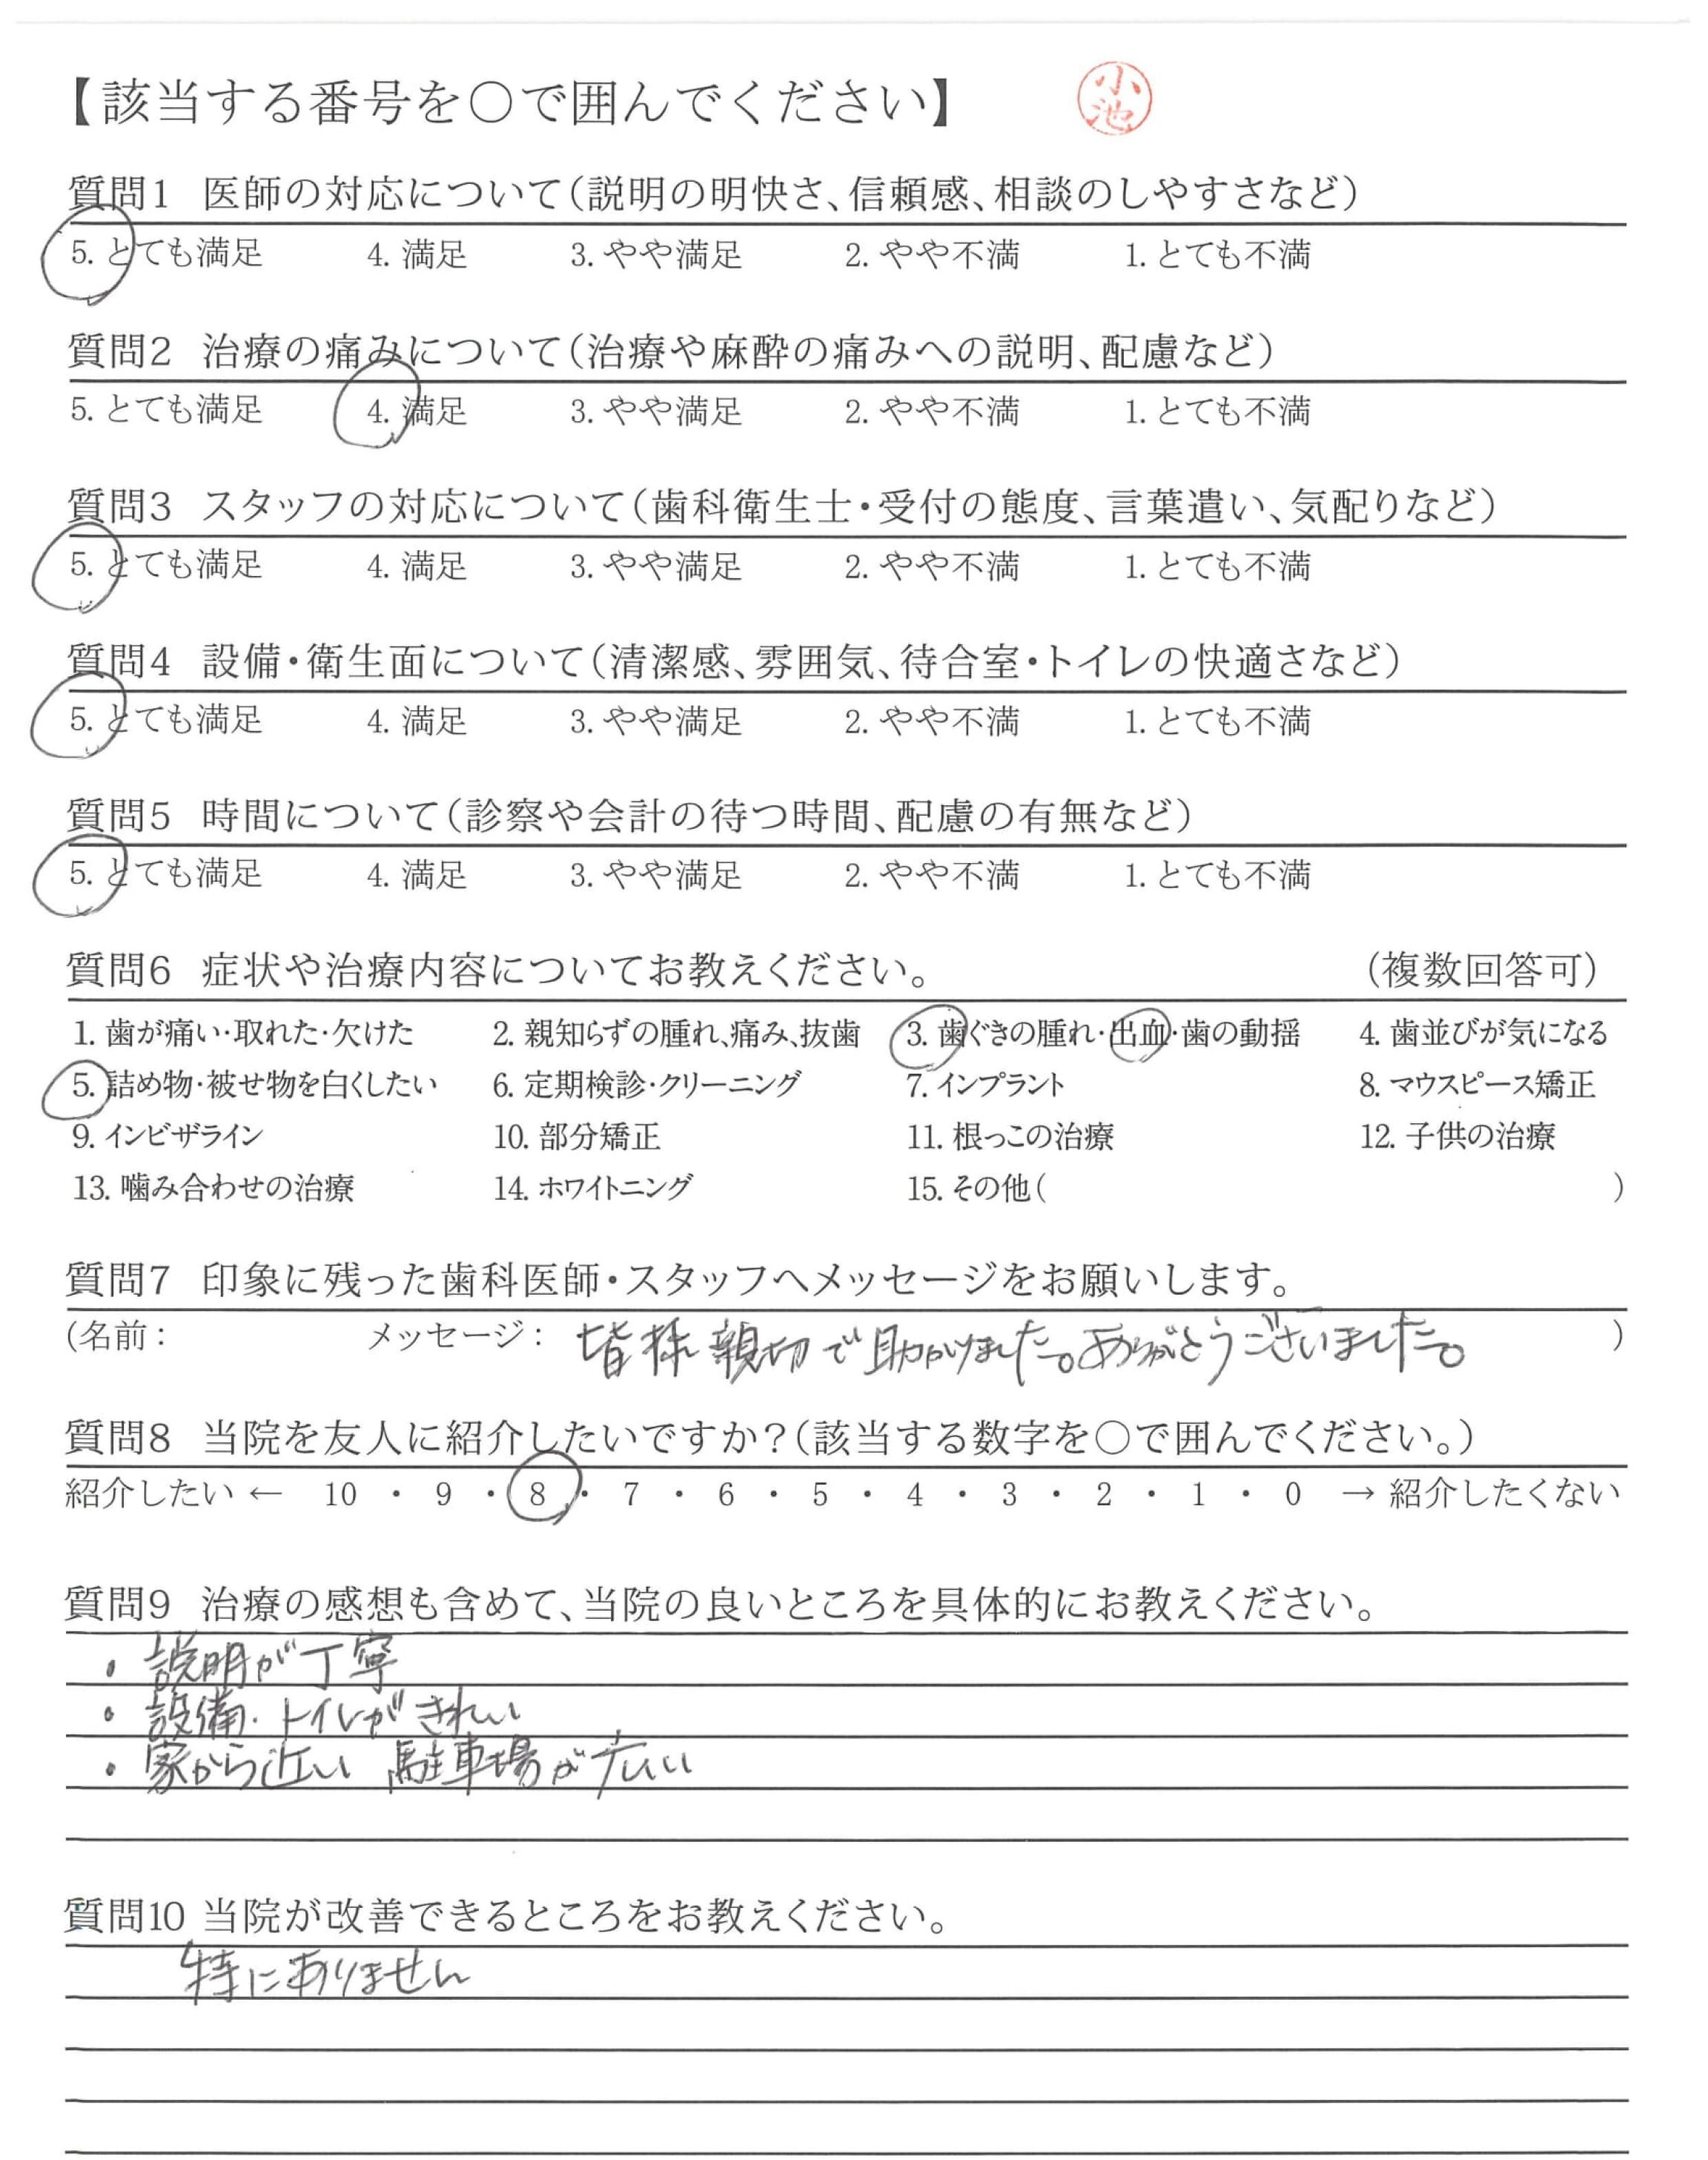 【該当する番号を〇で囲んでください】 小池
質問1 医師の対応について(説明の明快さ、信頼感、相談のしやすさなど)
5. とても満足 4. 満足 3. やや満足 2. やや不満 1. とても不満
質問2 治療の痛みについて(治療や麻酔の痛みへの説明、配慮など)
5. とても満足 4. 満足 3. やや満足 2. やや不満 1. とても不満
質問3 スタッフの対応について(歯科衛生士・受付の態度、言葉遣い、気配りなど)
5. とても満足 4. 満足 3. やや満足 2. やや不満 1. とても不満
質問4 設備・衛生面について(清潔感、雰囲気、待合室・トイレの快適さなど)
5. とても満足 4. 満足 3. やや満足 2. やや不満 1. とても不満
質問5 時間について(診察や会計の待つ時間、配慮の有無など)
5. とても満足 4. 満足 3. やや満足 2. やや不満 1. とても不満
質問6 症状や治療内容についてお教えください。 (複数回答可)
1. 歯が痛い・取れた・欠けた 2. 親知らずの腫れ、痛み、抜歯 3. 歯ぐきの腫れ・出血・歯の動揺 4. 歯並びが気になる
5. 詰め物・被せ物を白くしたい 6. 定期検診・クリーニング 7. インプラント 8. マウスピース矯正
9. インビザライン 10. 部分矯正 11. 根っこの治療 12. 子供の治療
13. 噛み合わせの治療 14. ホワイトニング 15. その他( )
質問7 印象に残った歯科医師・スタッフへメッセージをお願いします。
(名前: メッセージ: 皆様親切で助かりました。ありがとうございました。 )
質問8 当院を友人に紹介したいですか?(該当する数字を〇で囲んでください。)
紹介したい ← 10 ・ 9 ・ 8 ・ 7 ・ 6 ・ 5 ・ 4 ・ 3 ・ 2 ・ 1 ・ 0 → 紹介したくない
質問9 治療の感想も含めて、当院の良いところを具体的にお教えください。
・説明が丁寧
・設備・トイレがきれい
・家から近い 駐車場が広い
質問10 当院が改善できるところをお教えください。
特にありません